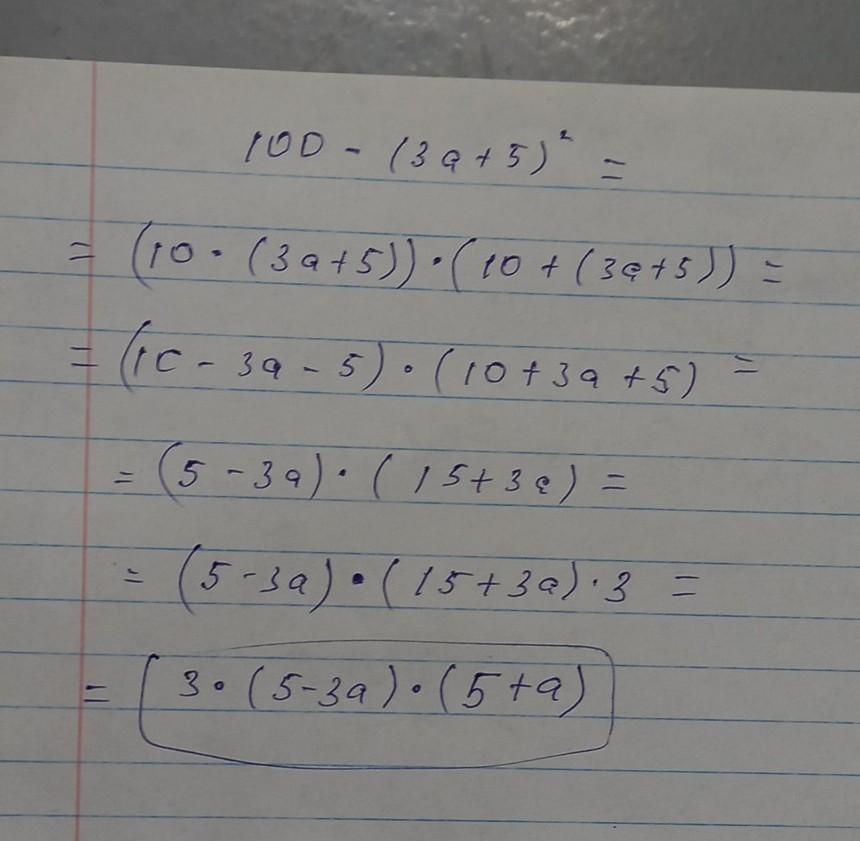 100 - (3a+5)² =
= (10 - (3a+5)) · (10 + (3a+5)) =
= (10 - 3a - 5) · (10 + 3a + 5) =
= (5 - 3a) · (15 + 3a) =
= (5 - 3a) · (15 + 3a) · 3 =
= 3 · (5 - 3a) · (5 + a)